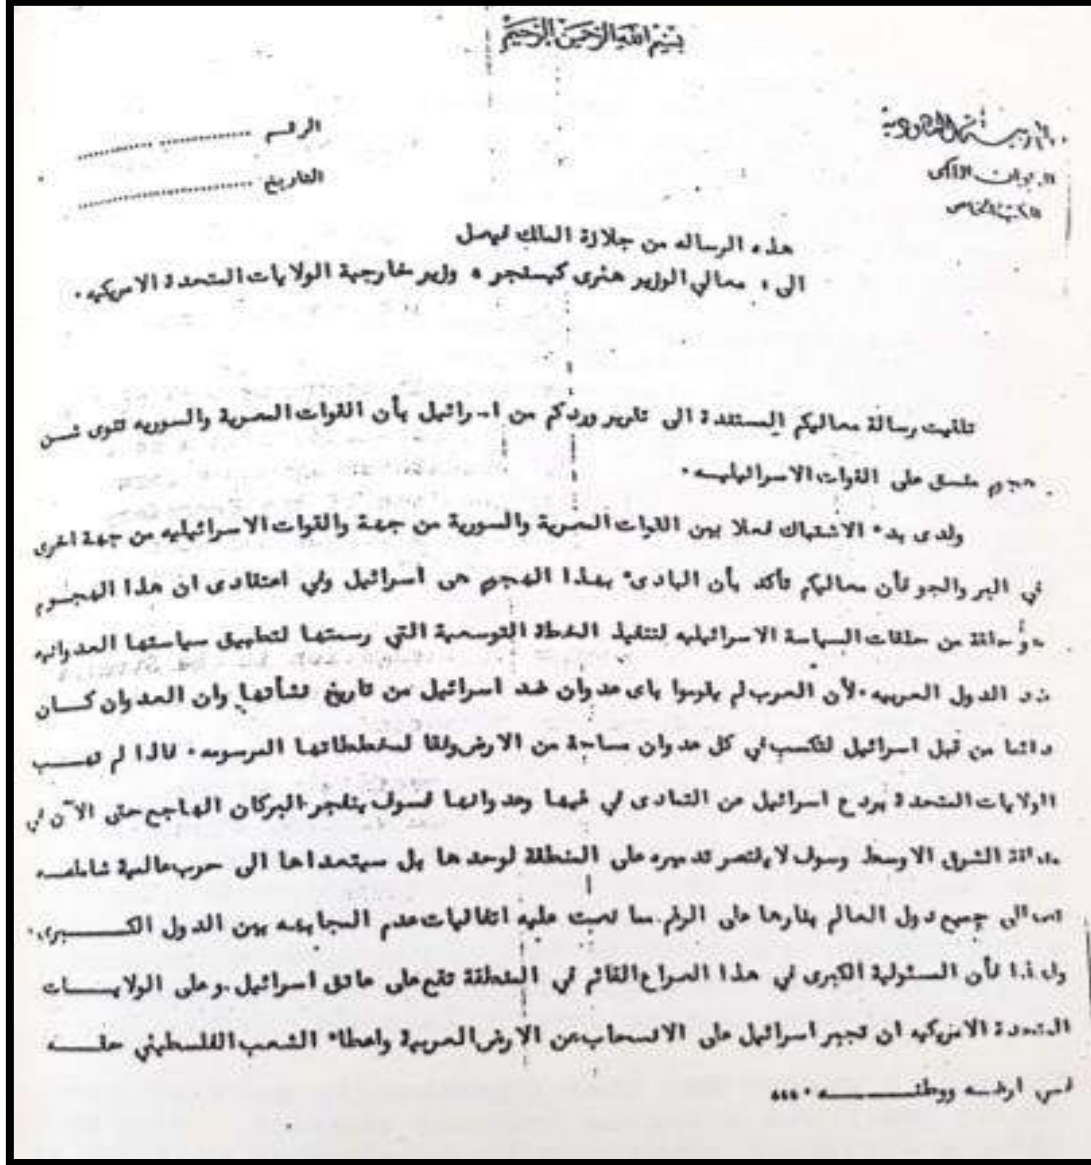 بسم الله الرحمن الرحيم
المملكة العربية السعودية
الديوان الملكي
المكتب الخاص
الرقم ......................
التاريخ ......................
هذه الرساله من جلالة الملك فيصل
الى ، معالي الوزير هنرى كيسنجر ، وزير خارجية الولايات المتحدة الامريكيه .
تلقيت رسالة معاليكم المستندة الى تقرير وردكم من اسرائيل بأن القوات المصرية والسوريه تنوى شن
هجوم منسق على القوات الاسرائيليه .
ولدى بدء الاشتباك فعلا بين القوات المصرية والسورية من جهة والقوات الاسرائيليه من جهة اخرى
في البر والجو فأن معاليكم تأكد بأن البادىء بهذا الهجوم هى اسرائيل وفي اعتقادى ان هذا الهجوم
هو حلقة من حلقات السياسة الاسرائيليه لتنفيذ الخطة التوسعية التي رسمتها لتطبيق سياستها العدوانيه
ضد الدول العربيه . لأن العرب لم يقوموا باى عدوان ضد اسرائيل من تاريخ نشأتها وان العدوان كان
دائما من قبل اسرائيل لتكسب في كل عدوان مساحة من الارض وفقا لمخططاتها المرسومه . فاذا لم تهب
الولايات المتحدة بردع اسرائيل عن التمادى في غيها وعدوانها فسوف ينفجر البركان الهاجع حتى الآن في
منطقة الشرق الاوسط وسوف لا يقتصر تدميره على المنطقة لوحدها بل سيتعداها الى حرب عالمية شامله
الى جميع دول العالم بنارها على الرغم مما نصت عليه اتفاليات عدم المجابهه بين الدول الكبرى .
ولهذا فأن المسئولية الكبرى في هذا الصراع القائم في المنطقة تقع على عاتق اسرائيل . وعلى الولايات
المتحدة الامريكيه ان تجبر اسرائيل على الانسحاب من الارض العربية واعطاء الشعب الفلسطيني حقه
في ارضه ووطنه .،،،